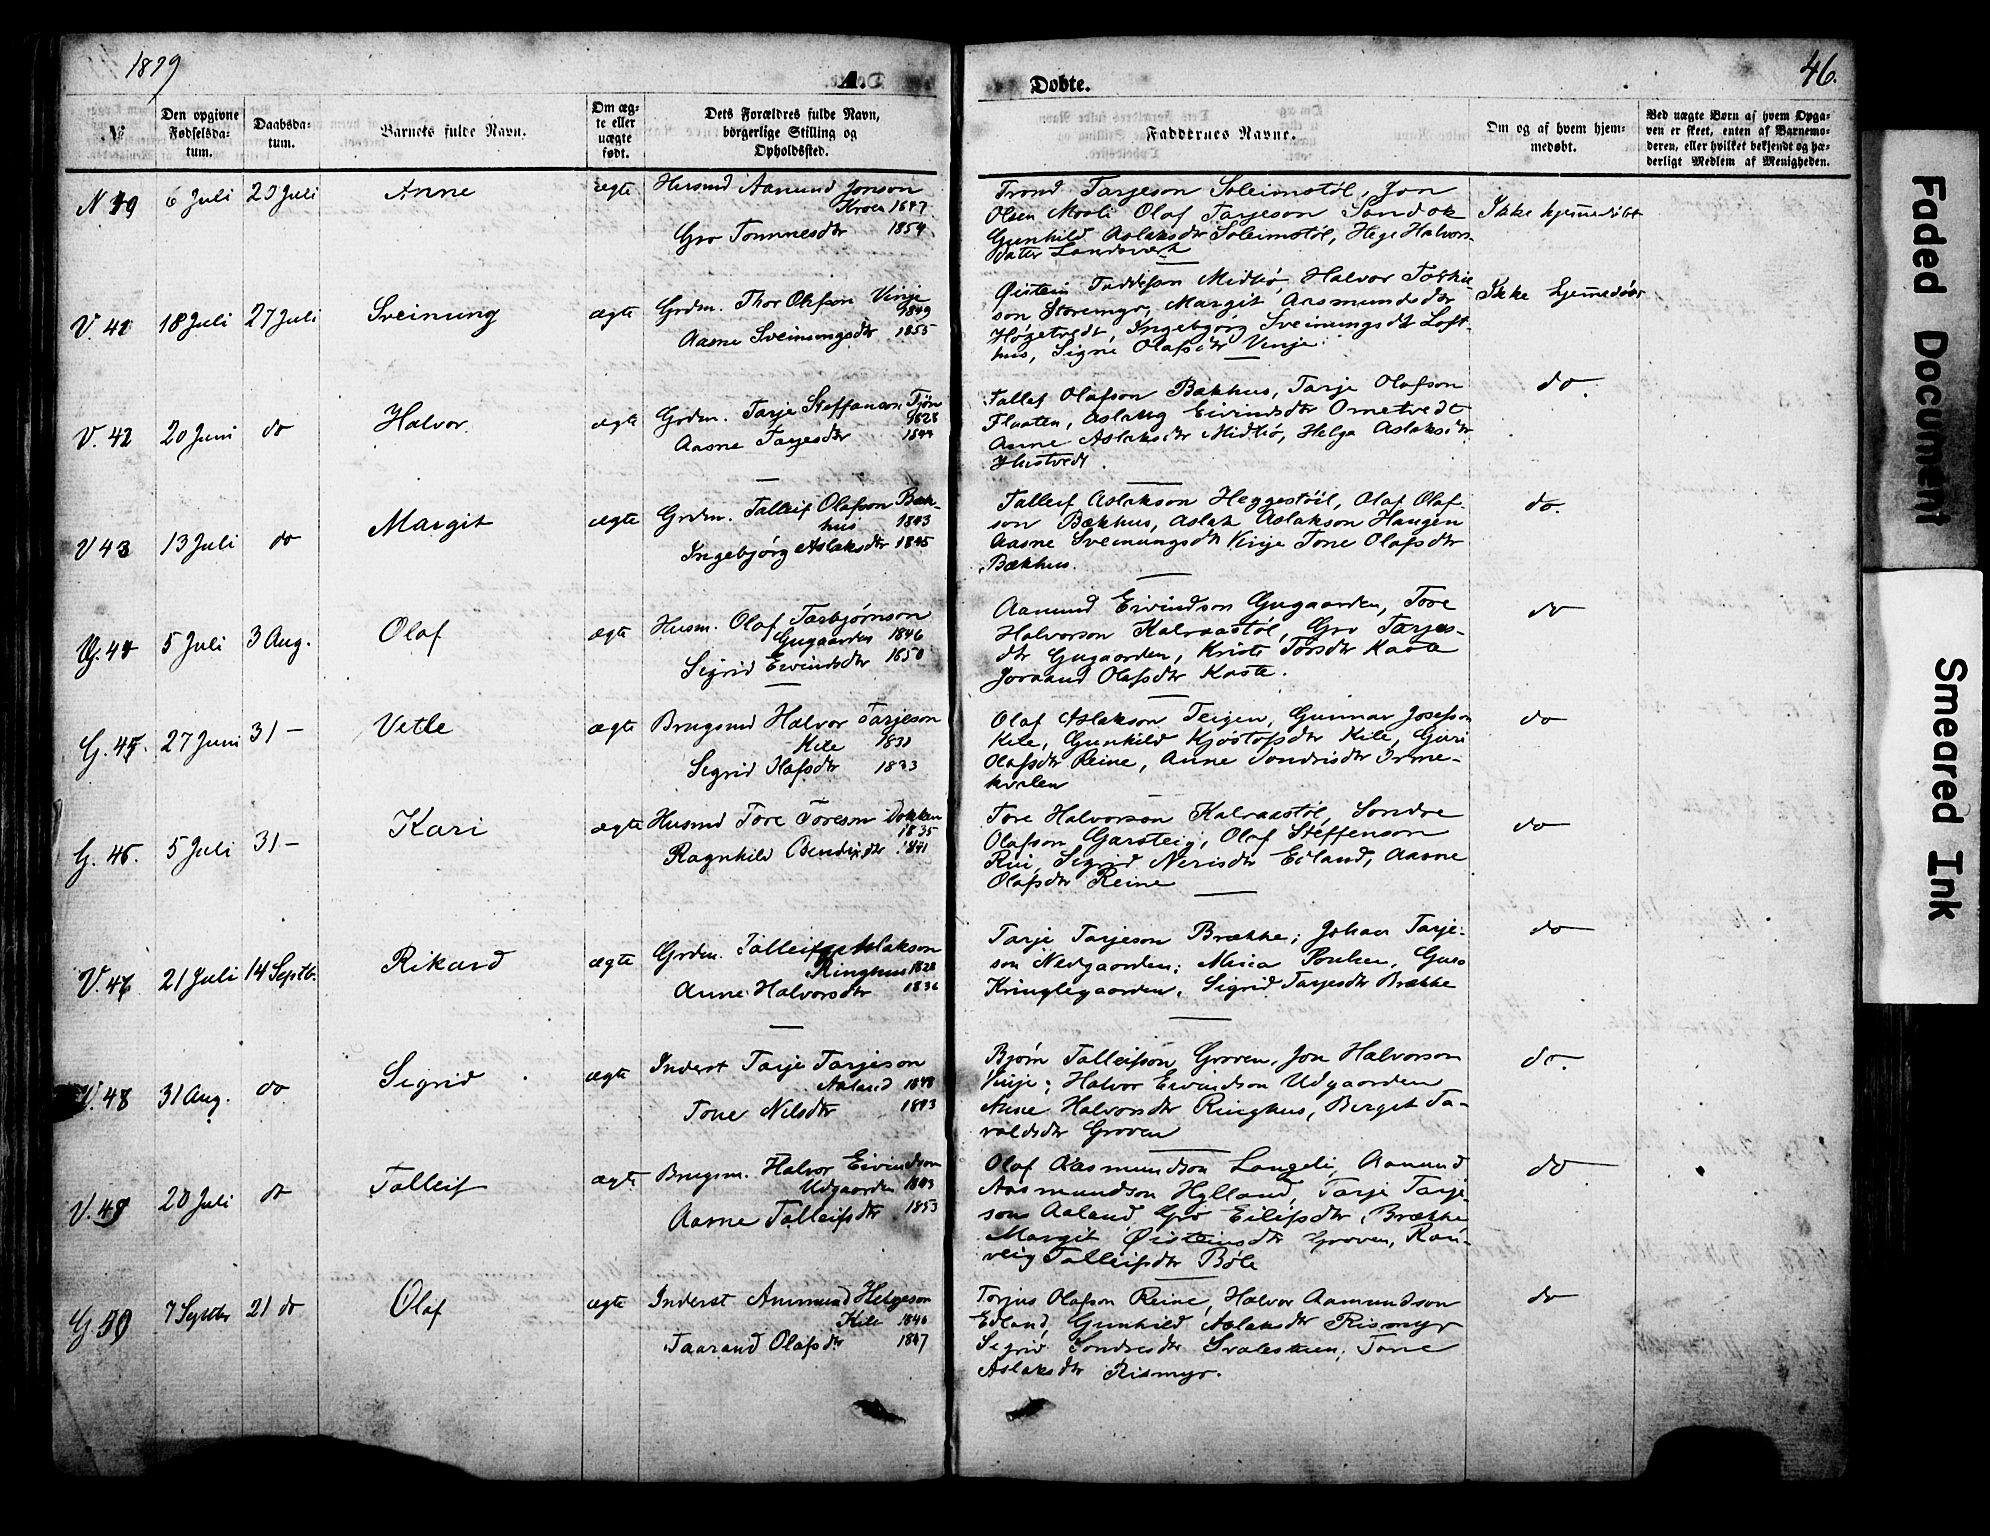 1879
A.
Døbte.
46.
№
Den opgivne Fødselsdatum.
Daabsdatum.
Barnets fulde Navn.
Om ægte eller uægte født.
Dets Forældres fulde Navn, borgerlige Stilling og Opholdssted.
Faddernes Navne.
Om og af hvem hjemmedøbt.
Ved uægte Børn af hvem Opgaven er skeet, enten af Barnemoderen, eller hvilket bekjendt og hæderligt Medlem af Menigheden.
6 Juli
Anne
ægte
Husmd Aamund Jonson
Gro Tommesdtr 1854.
Trond Tarjeson Soleimstøl, Jon
Olsen Moali Olaf Tarjeson Sandok
Gunhild Aslaksdtr Soleimstøl, Hege Halvors-
dater Landsverk
Ikke hjemmedøbt
V. 41
18 Juli
27 Juli
Sveinung
ægte
Grdm. Thor Olafson Vinje
1849
Aasne Sveinungsdtr 1855
Øistein Midbø, Halvor
son Storemyr, Margit Aasmundsdtr
Høgetvedt, Ingebjørg Sveinungsdt Loft-
hus, Signe Olafsdtr Vinje.
Ikke hjemmedøbt
V. 42
20 Juni
do
Halvor
ægte
Grdm. Tarje Steffensen Tjøn
1828
Aasne Tarjesdtr 1844
Tallef Olafson Bækhus, Tarje Olafson
Flaaten, Aslaug Eivindsdtr Ometvedt
Anne Aslaksdtr Midbø, Helga Aslaksdtr
do.
V 43
13 Juli
do
Margit
ægte
Grdm. Talleif Olafson Bæk-
hus 1843
Ingebjørg Aslaksdtr 1845
Talleif Aslakson Heggestøil, Olaf Olaf-
son Bækhus, Aslak Aslakson Haugen
Aasne Sveinungsdt Vinje Tone Olafsdtr
Bækhus.
do.
G. 44
5 Juli
3 Aug.
Olaf
ægte
Husm. Olaf Tarbjørnson
Gugaarden 1846
Sigrid Eivindsdtr 1850
Aamund Eivindson Gugaarden, Tore
Halvorson Kalvaastøl, Gro Tarjes-
dtr Gugaarden, Kristi Torsdtr Kaasa
Joraand Olafsdtr Kaasa.
do
G. 45.
27 Juni
31 –
Vetle
ægte
Brugsmd Halvor Tarjeson
Kile
Sigrid Olafsdtr 1833
Olaf Aslakson Teigen, Gunnar Josefson
Kile, Gunhild Kjøstofsdtr Kile, Guri
Olafsdtr Reine, Anne Sondresdtr
do
G. 46.
5 Juli
31 –
Kari
ægte
Husmd Tore Toreson Dokken
1835
Ragnhild Bendixdtr 1841
Tore Halvorson Kalvaastøl, Sondre
Olafson Garsteig, Olaf Steffenson
Rui, Sigrid Nerisdtr Eiland, Aasne
Olafsdtr Reine
do
V. 47
21 Juli
14 Septb.
Rikard
ægte
Grdm. Talleif Aslakson
Ringhus 1828
Anne Halvorsdtr 1836
Tarje Tarjeson Brække; Johan Tarje-
son Nedgaarden; Poulsen, Guro
Kringlegaarden, Sigrid Tarjesdtr Brække
do
V. 48
31 Aug.
do
Sigrid
ægte
Inderst Tarje Tarjeson
Aaland 1848
Tone Nilsdtr 1843
Bjørn Talleifson Groven, Jon Halvorson
Vinje; Halvor Eivindson Udgaarden
Anne Halvorsdtr Ringhus, Berget Ta-
valdsdtr Groven
do.
V. 49
20 Juli
do
Talleif
ægte
Brugsm. Halvor Eivindson
Udgaarden 1843
Aasne Talleifsdtr 1853
Olaf Aasmundson Langeli, Aamund
Aasmundson Hylland, Tarje Tarje-
son Aaland, Gro Eilifsdtr, Brække
Margit Øisteinsdtr Groven, Ran-
veig Talleifsdtr Bøle
do
G 50
7 Septbr
21 do
Olaf
ægte
Inderst Ammund Helgeson
Kile 1846
Taarand Olafsdtr 1847
Torjus Olafson Reine, Halvor Aamundson
Eiland, Gunhild Aslaksdtr Rismyr
Sigrid Sondresdtr Tone
Aslaksdtr Rismyr.
do
Faded Document
Smeared Ink